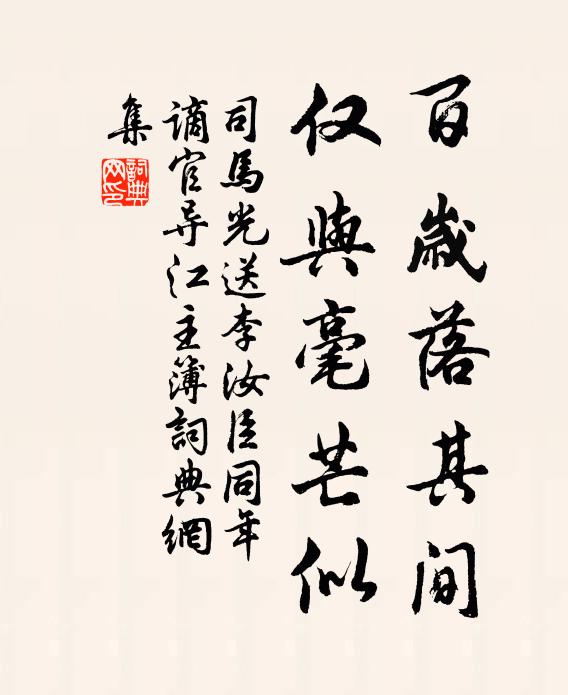 百歲落其间
仅與毫芒似
司馬光送李汝臣同年
謫官导江主簿詞典網
集
詞典网印